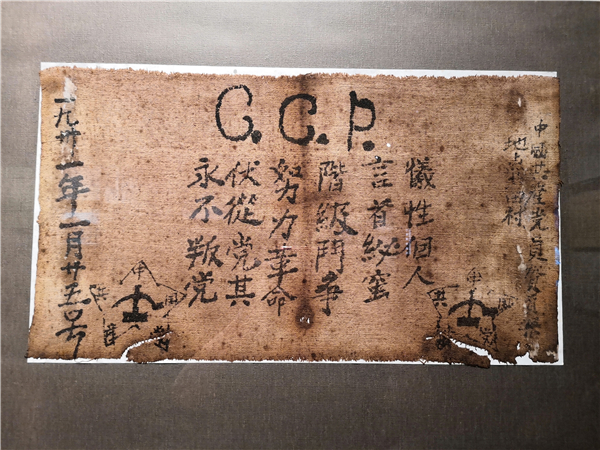 C.C.P.
中國共產党員
地点田村
犧牲個人
言首秘蜜
階級鬥争
努力革命
伏從党其
永不叛党
一九卅一年一月廿五号
中
共
中
国
共
產
党